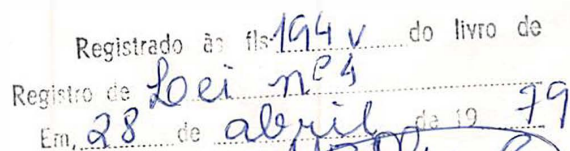 Registrado às fls. 194 v do livro de
Registro de Lei nº 4
Em, 28 de abril de 19 79